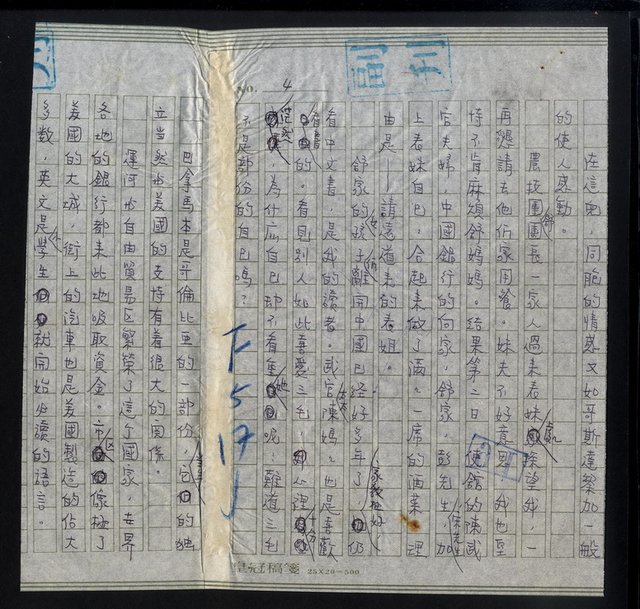 副刊
NO. 4
在這兒，同胞的情感又如哥斯達黎加一般
的使人感動。
農技團團長一家人過來表妹家探望我，一
再懇請去他們家用餐。妹夫不好意思，我也堅
持不肯麻煩舒媽媽。結果第二日，使館的陳武
官夫婦，中國銀行的向家，舒家，彭先生，宋先生加
上表妹自己，合起來做了滿滿一席的酒菜，理
由是——請遠道來的表姐。
舒家的女孩子們離開中國已經好多年了，家教極好，仍
看中文書，是我的讀者。武官陳媽太太也是喜歡
看書的。看見別人如此喜愛三毛，心裡十分
茫然。為什麼自己卻不看重她呢，難道三毛
不是部份的自己嗎？
巴拿馬本是哥倫比亞的一部份，它的獨
立當然與美國的支持有着很大的關係。
運河與自由貿易區繁榮了這個國家，世界
各地的銀行都來此地吸取資金。市區像極了
美國的大城，街上的汽車也是美國製造的佔大
多數，英文是小學生就開始必讀的語言。
F517J
皇冠稿箋 25×20=500